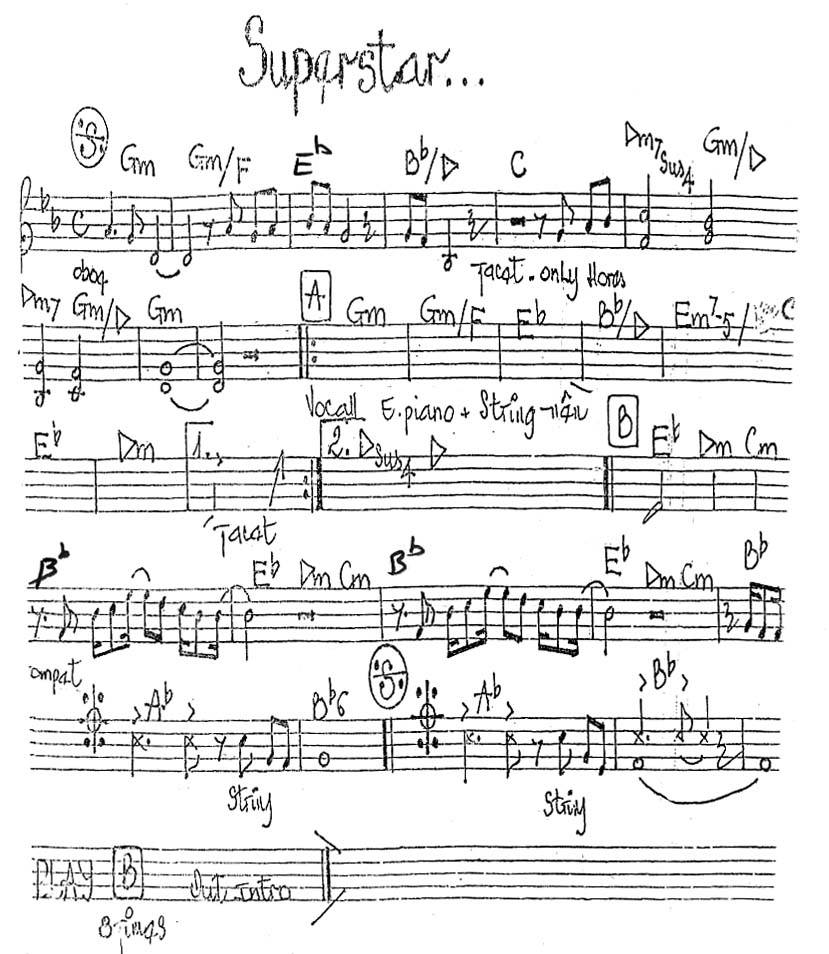 Superstar...
Gm Gm/F E♭ B♭/D C Dm7sus4 Gm/D
oboe
Tacet. only Horns
Dm7 Gm/D Gm A Gm Gm/F E♭ B♭/D Em7-5/
Vocall E.piano + String
E♭ Dm 1. 2. Dsus4 D B E♭ Dm Cm
Tacet
B♭ E♭ Dm Cm B♭ E♭ Dm Cm B♭
A♭ B♭6 A♭ B♭
String String
PLAY B Out, intro